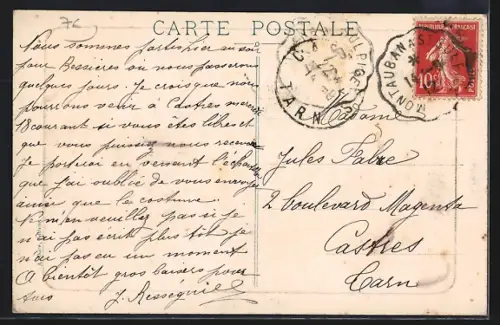 CARTE POSTALE
Nous sommes partis hier au soir
pour Bessières ou nous passerons
quelques jours. Je crois que nous
pourrons venir à Castres mercredi
18 courant si vous êtes libres et
que vous puissiez nous recevoir
Je porterai en versant l'écharpe
que j'ai oublié de vous envoyer
ainsi que le costume.
Ne m'en veuillez pas si je
n'ai pas écrit plus tôt je
n'ai pas eu un moment
A bientôt gros baisers pour
tous J. Rességuier
TARN
MONTAUBAN
10
Madame
Jules Fabre
2 boulevard Magenta
Castres
Tarn